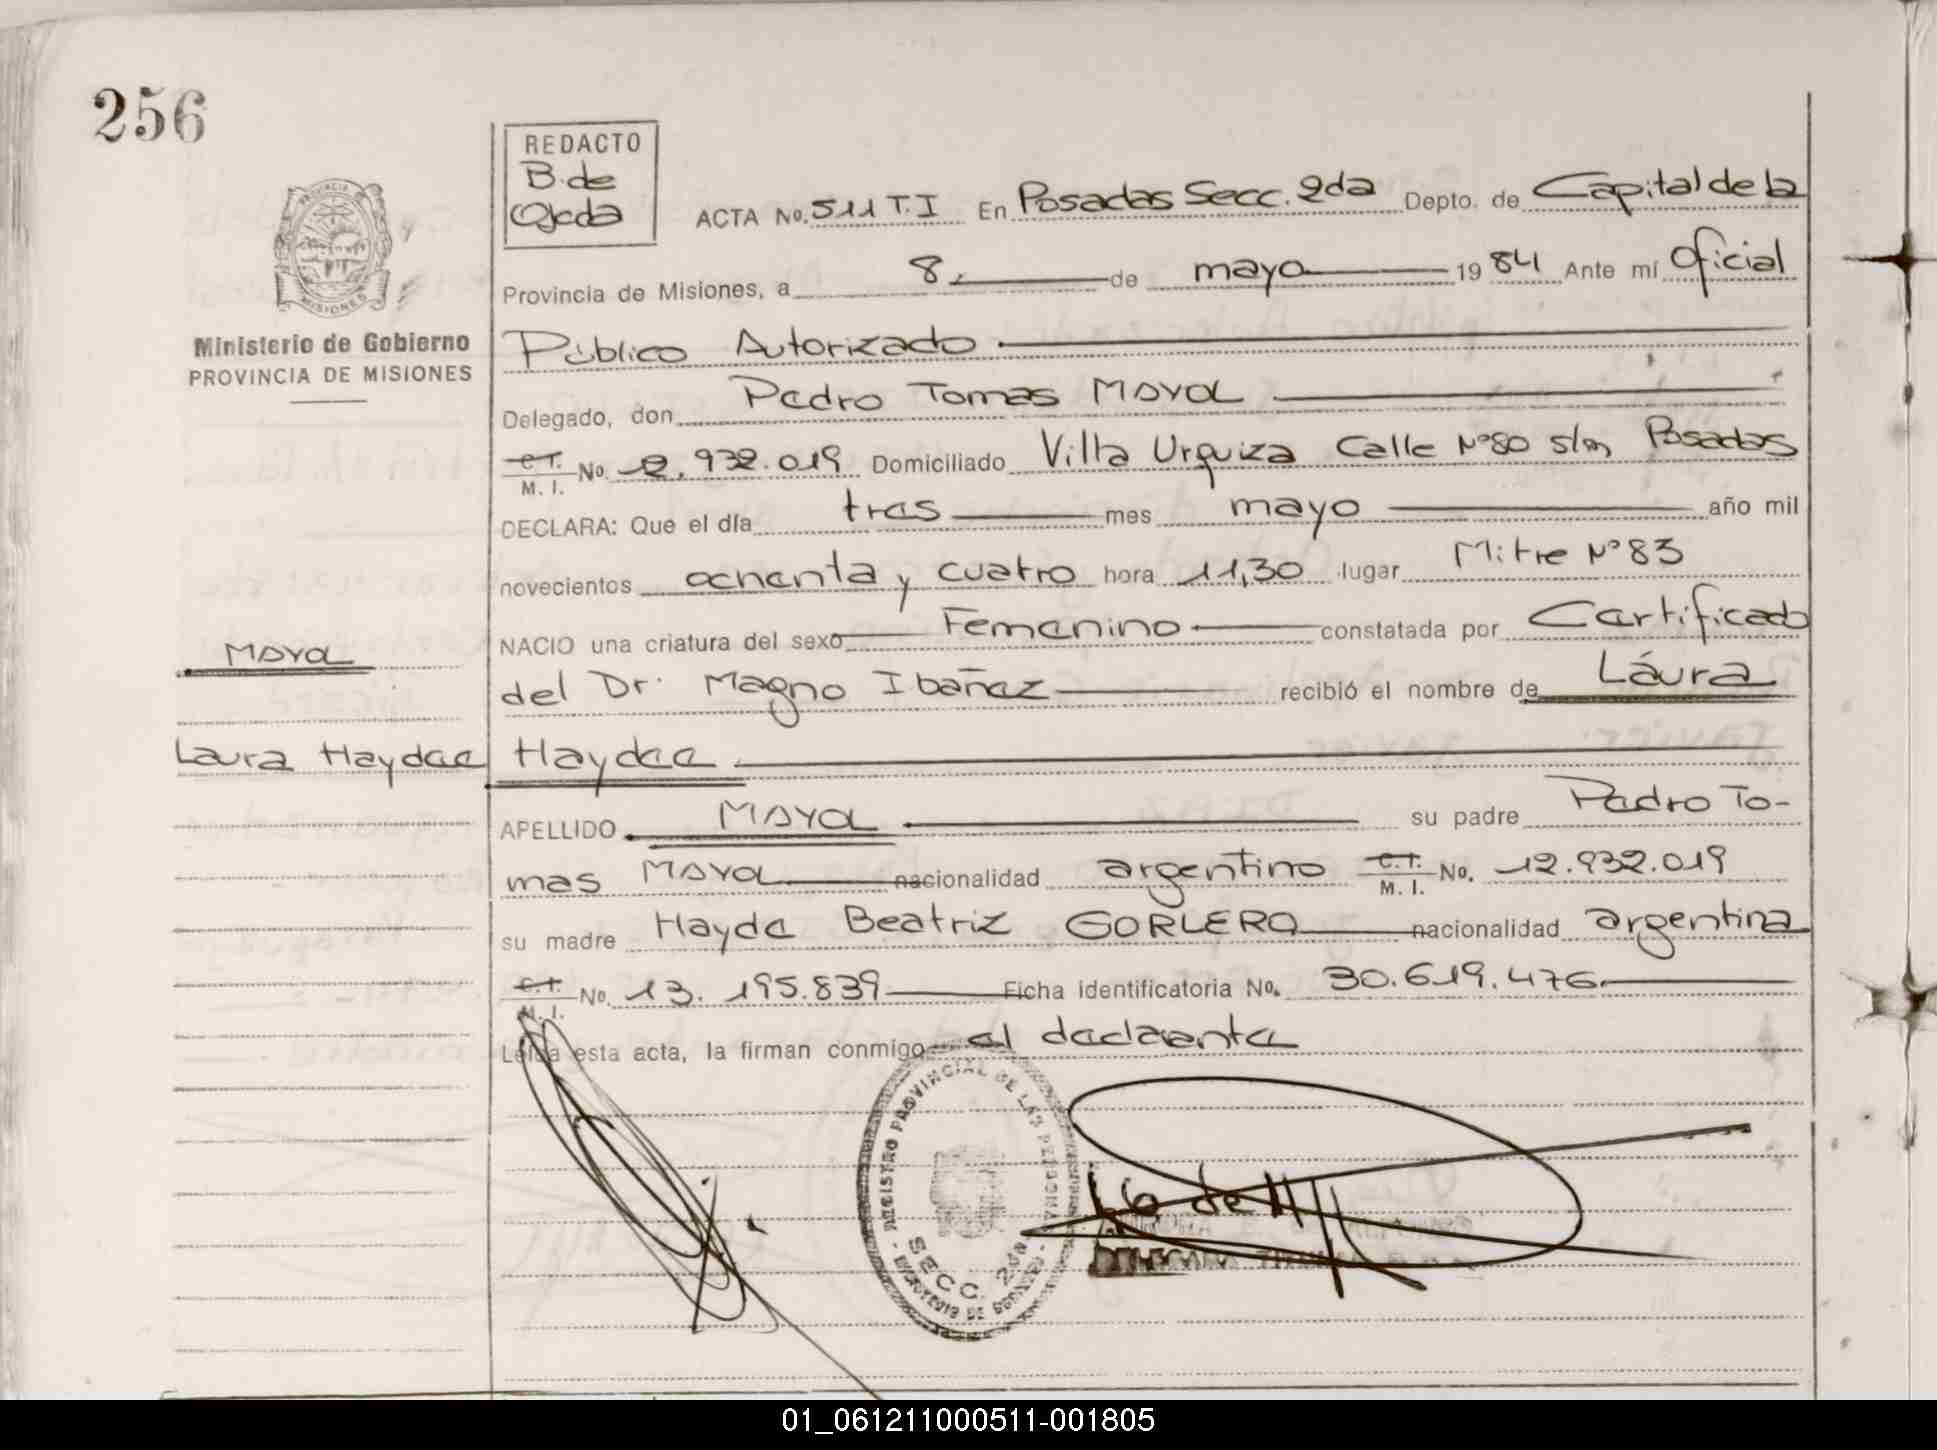 256
REDACTO
B. de
Ojeda
ACTA No. 511 T.I En Posadas Secc. 2da Depto. de Capital de la
Provincia de Misiones, a 8, de mayo 19 84 Ante mí Oficial
Público Autorizado
Delegado, don Pedro Tomas MAYOL
C.I. M. I. No. 12.932.019 Domiciliado Villa Urquiza Calle Nº80 s/n Posadas
DECLARA: Que el día tres mes mayo año mil
novecientos ochenta y cuatro hora 11,30 lugar Mitre Nº83
NACIO una criatura del sexo Femenino constatada por Certificado
del Dr. Magno Ibañez recibió el nombre de Láura
Haydee
APELLIDO MAYOL su padre Pedro To-
mas MAYOL nacionalidad argentino C.I. M. I. No. 12.932.019
su madre Hayde Beatriz GORLERO nacionalidad argentina
C.I. M. I. No. 13.195.839 Ficha identificatoria No. 30.619.476
Leída esta acta, la firman conmigo el declarante
MISIONES
Ministerio de Gobierno
PROVINCIA DE MISIONES
MAYOL
Laura Haydee
REGISTRO PROVINCIAL DE LAS PERSONAS
SECC. 2da
01_061211000511-001805